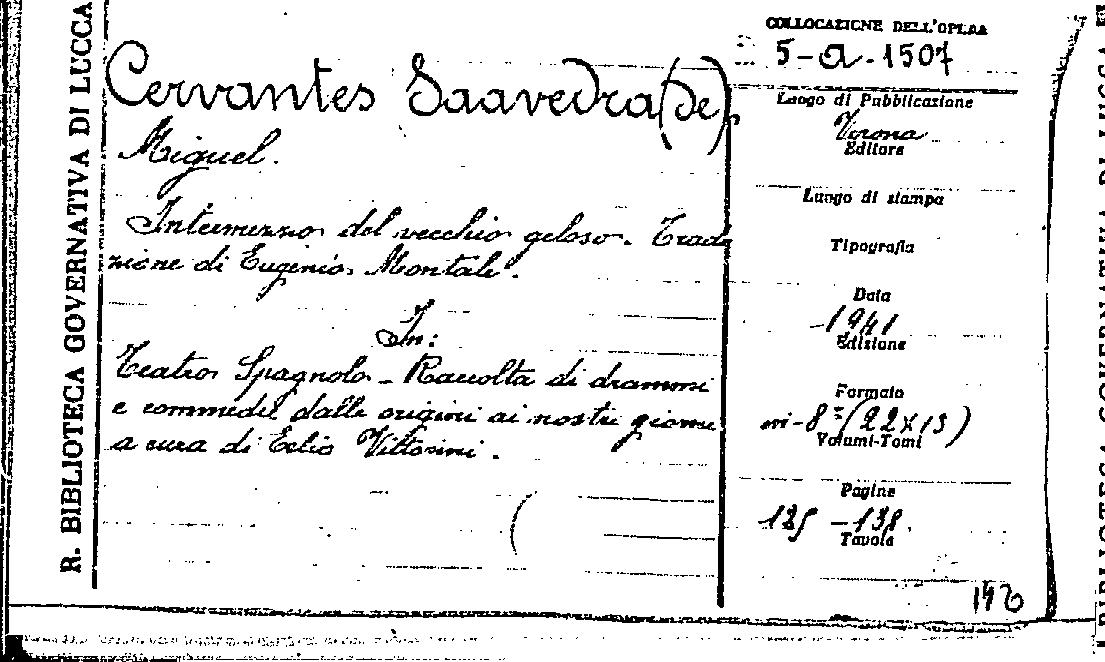 R. BIBLIOTECA GOVERNATIVA DI LUCCA
Cervantes Saavedra (de)
Miguel.
Intermezzo del vecchio geloso. Tradu
zione di Eugenio Montale.
In:
Teatro Spagnolo - Raccolta di drammi
e commedie dalle origini ai nostri giorni
a cura di Elio Vittorini.
COLLOCAZIONE DELL'OPERA
5-a-1507
Luogo di Pubblicazione
Verona
Editore
Luogo di stampa
Tipografia
Data
1941
Edizione
Formato
in-8º (22x13)
Volumi-Tomi
Pagine
125 - 138.
Tavole